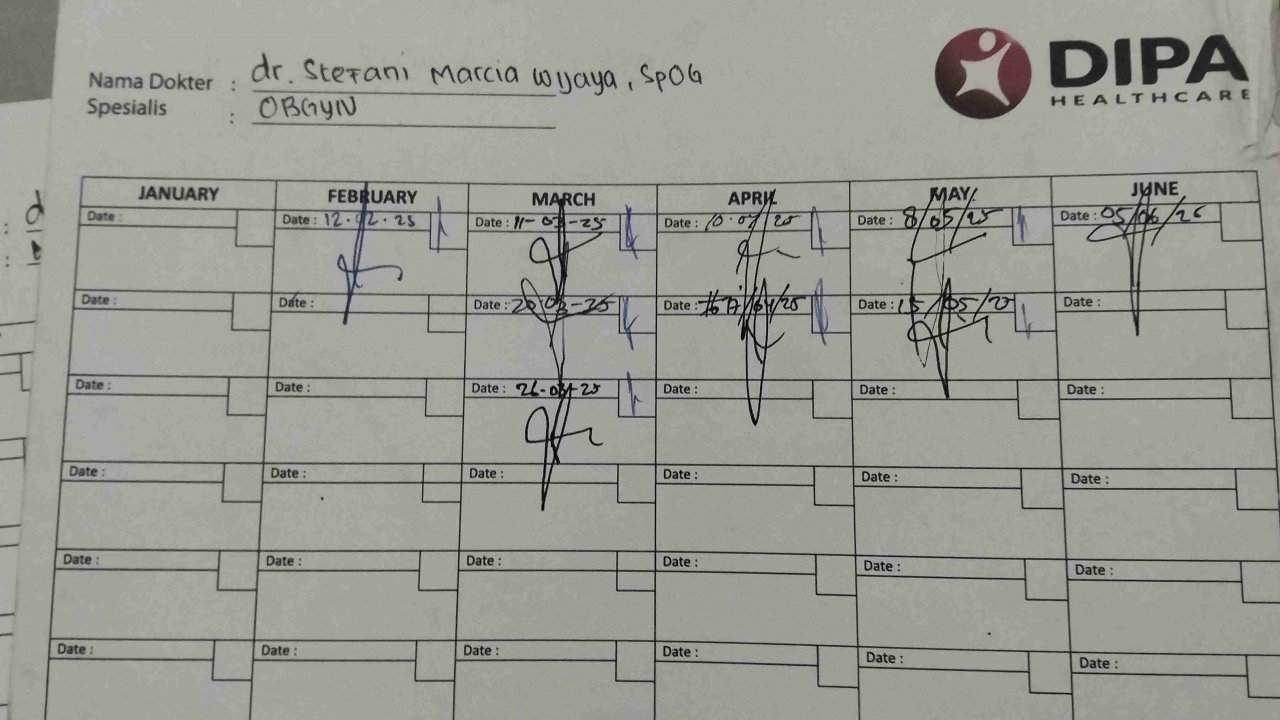 Nama Dokter : dr. Stefani Marcia Wijaya, SpOG
Spesialis : OBGYN
DIPA
HEALTHCARE
JANUARY FEBRUARY MARCH APRIL MAY JUNE
Date : Date : 12.02.25 Date : 11-03-25 Date : Date : 8/05/25 Date :
Date : Date : Date : 20-03-25 Date : Date : 15/05/25 Date :
Date : Date : Date : 26-03-25 Date : Date : Date :
Date : Date : Date : Date : Date : Date :
Date : Date : Date : Date : Date : Date :
Date : Date : Date : Date : Date : Date :